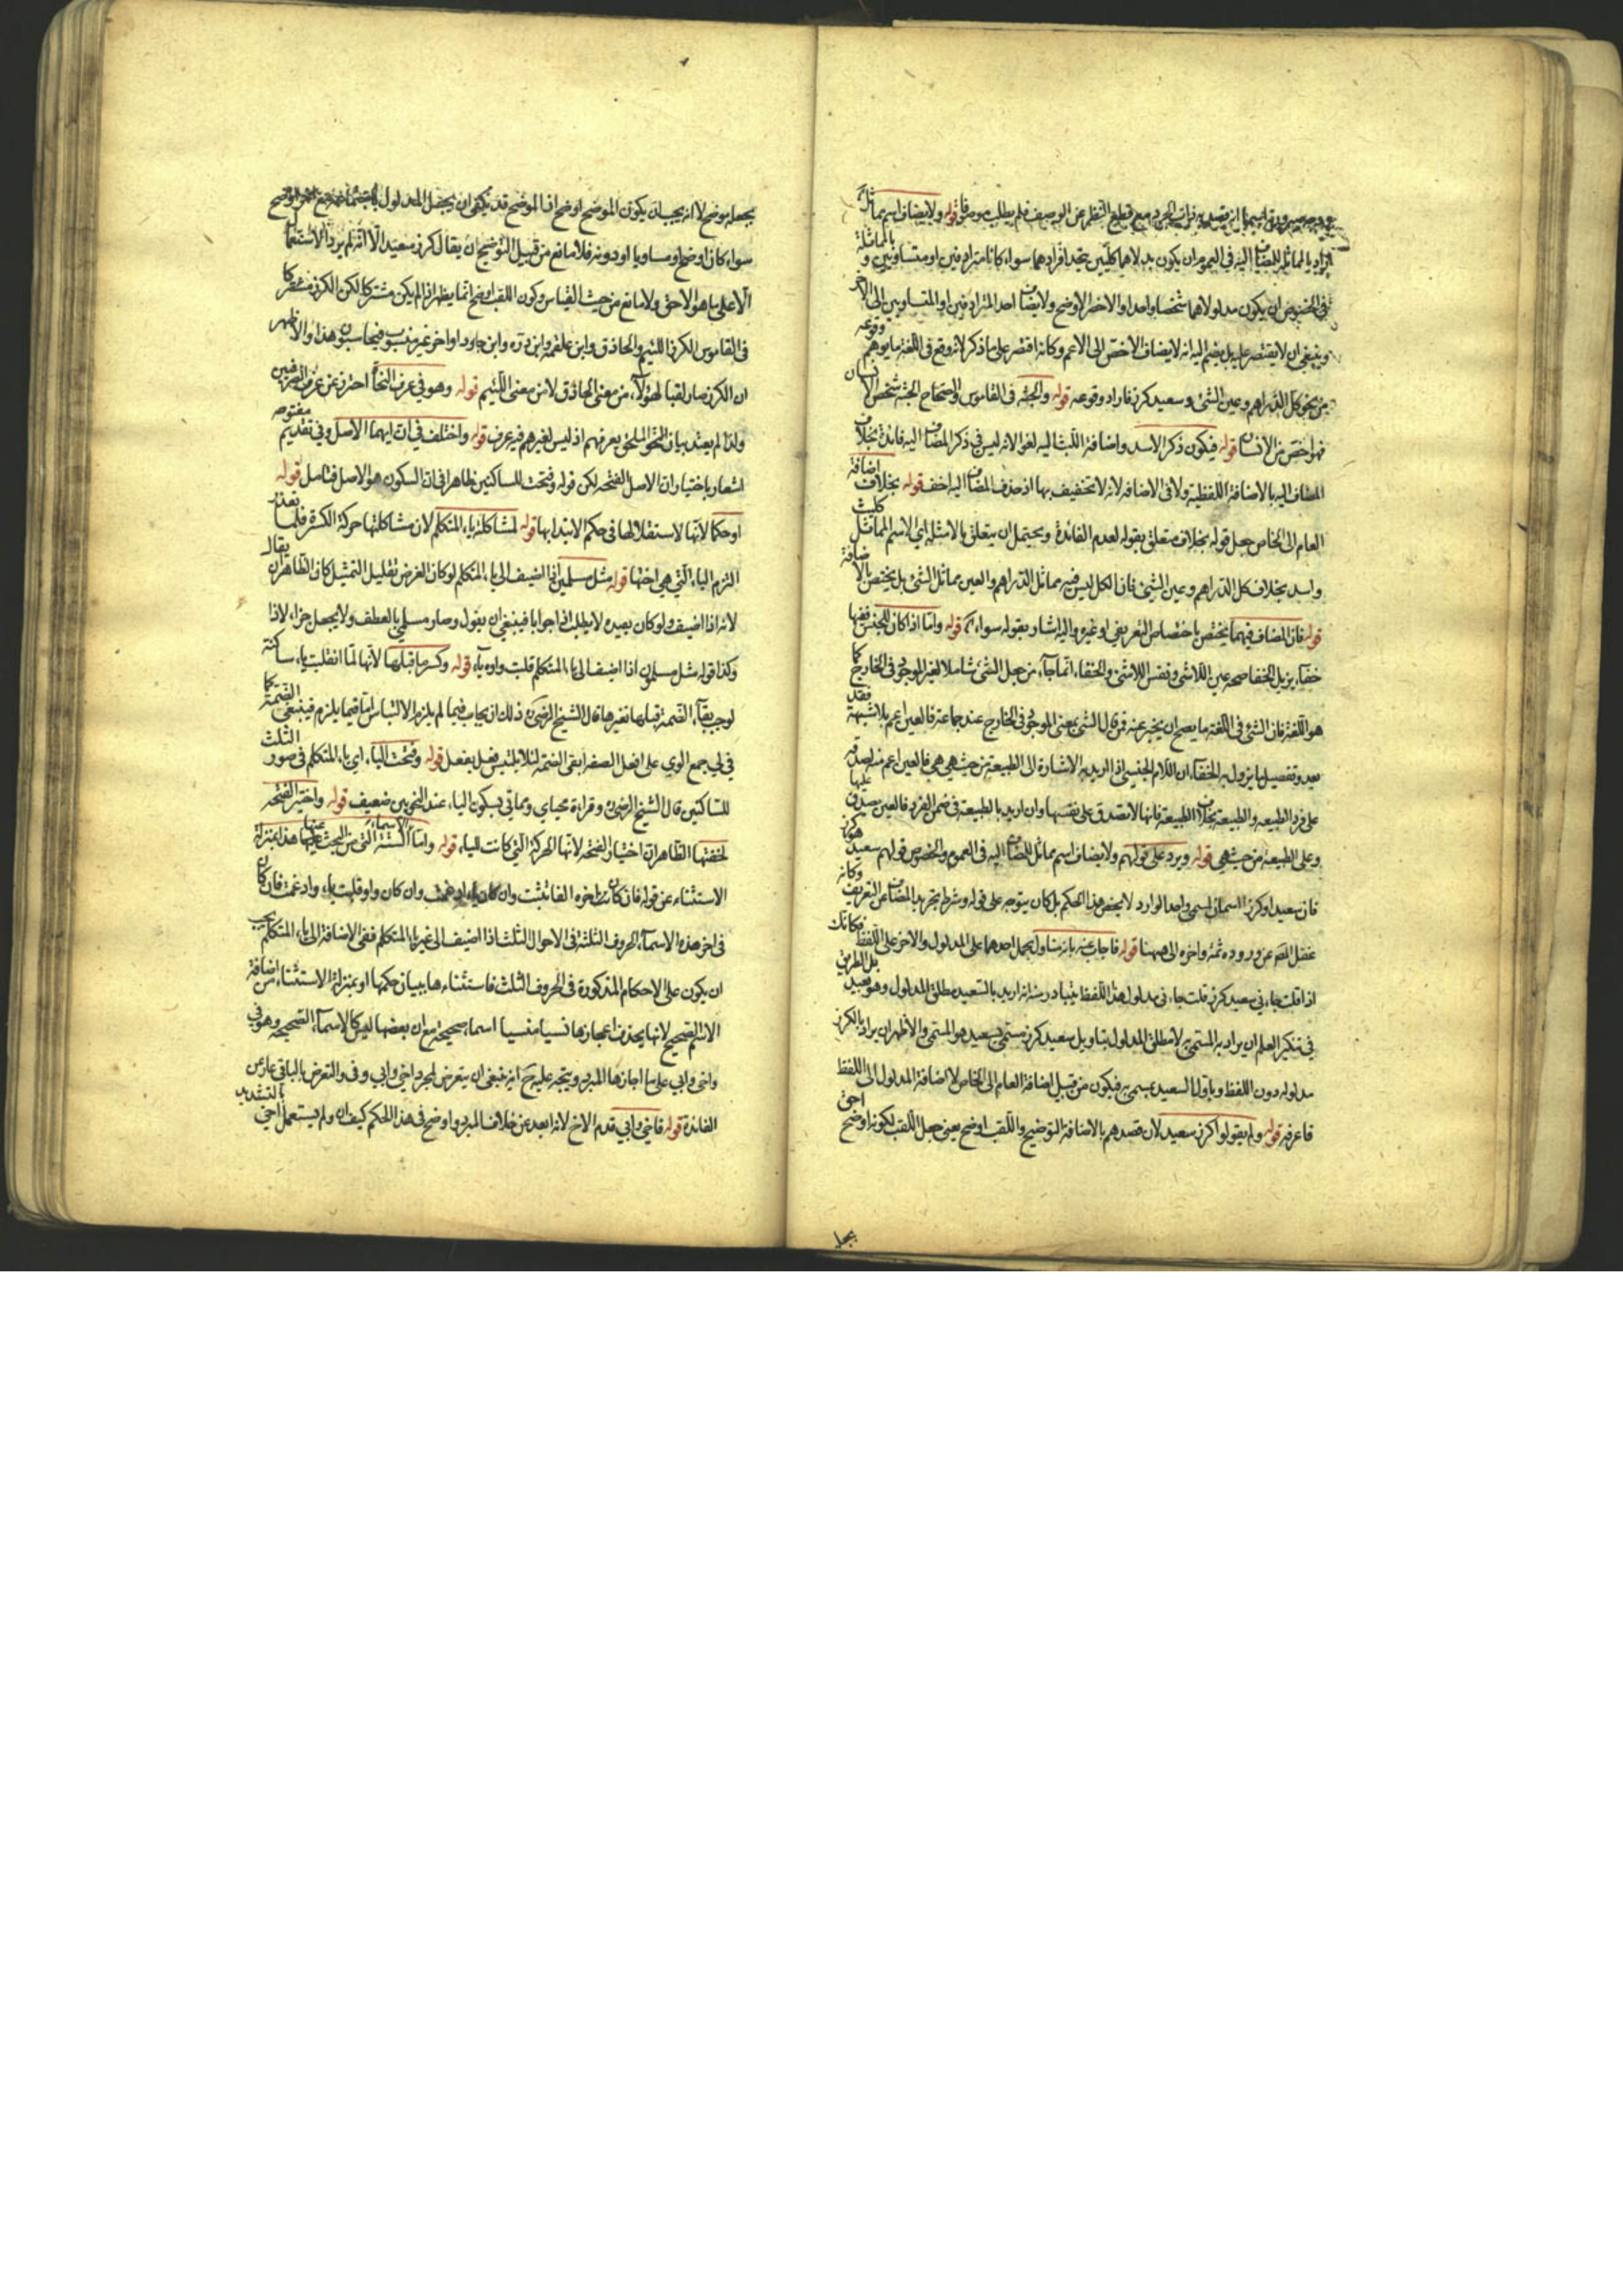 وجه صيرورته اسما ان يقصد به ذات الجرد مع قطع النظر عن الوصف فلم يطلب موصوفا قوله ولا يضاف اسم مماثل
اراد بالمماثل للمضاف اليه في العموم ان يكون مدلولاهما كليين يتحد افرادهما سواء كانا مترادفين او متساويين و بالمماثلة
في الخصوص ان يكون مدلولاهما شخصا واحدا والاخر الاوضح ولا يضاف احد المترادفين او المتساويين الى الاخر
وينبغي ان لا يقتصر عليه بل يضم اليه انه لا يضاف الاخص الى الاعم وكانه اقتصر على ما ذكر لانه وقع في اللغة ما يوهم وقوعه
من نحو كل الدراهم وعين الشئ وسعيد كرز فاراد وقوعه قوله والجثه في القاموس والصحاح الجثه شخص الانسان
فهو اخص من الانسان قوله فيكون ذكر الاسد واضافة الليث اليه لغوا لانه ليس في ذكر المضاف اليه فائدة بخلاف
المضاف اليه بالاضافة اللفظية ولا في الاضافه لانه لا تخفيف بها اذ حذف المضاف اليه اخف قوله بخلاف اضافة
العام الى الخاص جعل قوله بخلاف متعلق بقوله لعدم الفائدة ويحتمل ان يتعلق بالامثلة اي الاسم المماثل كليث
واسد بخلاف كل الدراهم وعين الشئ فان الكل ليس فيه مماثل الدراهم والعين مماثل الشئ بل يختص بالاضافة
قوله فان المضاف فيهما يختص باختصاص التعريفي او غيره واليه اشار بقوله سواء قوله واما اذا كان للجنس ففيها
خفاء يزيل الخفا صحه عين اللاشئ ونفس اللاشئ والخفاء انما جاء من جعل الشئ شاملا لغير الموجود في الخارج كما
هو اللغة فان الشئ في اللغة ما يصح ان يخبر عنه فمن قال الشئ بمعنى الموجود في الخارج عند جماعة فالعين اعم بلا شبهة فقد
بعد وتفصيل ما يزول به الخفاء ان اللام الجنسي اذا اريد به الاشارة الى الطبيعة من حيث هي هي فالعين اعم منه لصدقه
على فرد الطبيعه والطبيعة بخلاف الطبيعة فانها لا تصدق على نفسها وان اريد بالطبيعة في ضمن الفرد فالعين يصدق عليها
وعلى الطبيعة من حيث هي قوله ويرد على قولهم ولا يضاف اسم مماثل للمضاف اليه في العموم والخصوص قولهم سعيد كرز
فان سعيدا وكرز اسمان لمسمى واحد الوارد لا يخص هذا الحكم بل كان يتوجه على قوله وشرط تجريد المضاف من التعريف وكانه
غفل المص عن وروده ثمة واخره الى ههنا قوله فاجاب عنه بانه متاول بحمل احدهما على المدلول والاخر على اللفظ فكانك
اذا قلت جاءني سعيد كرز قلت جاءني مدلول هذا اللفظ يتبادر منه انه اريد بالسعيد مطلق المدلول وهو بعيد بل الطريق
في تنكير العلم ان يراد به المسمى به لا مطلق المدلول بتاويل سعيد كرز مسمى بسعيد هو المسمى والاظهر ان يراد بالكرز
مدلوله دون اللفظ وياول السعيد بمسمى به فيكون من قبيل اضافة العام الى الخاص لا اضافة المدلول الى اللفظ
فاعرفه قوله ولم يقولوا كرز سعيد لان قصدهم بالاضافة التوضيح واللقب اوضح يعني جعل اللقب لكونه اوضح احق
بجعله
بجعله موضحا لا انه يجب ان يكون الموضح اوضح اذ الموضح قد يكفي ان يجعل المدلول
سواء كان اوضح او مساويا او دونه فلا مانع من قبيل التوضيح ان يقال كرز سعيد الا انه لم يرد الاستعمال
الا على ما هو الاحق ولا مانع من حيث القياس وكون اللقب اوضح انما يظهر اذا لم يكن مشتركا لكن الكرز مشترك كما
في القاموس الكرز اللئيم والحاذق وابن علقمة وابن وبرة وابن جابر واخر غير منسوب فيحاسبون هذا والاظهر
ان الكرز صار لقبا لهؤلاء من معنى الحاذق لا من معنى اللئيم قوله وهو في عرف النحاة احترز عن عرف الصرفيين
ولذا لم يعتد ببيان النحو الملحق بعرفهم اذ ليس لغيرهم فيه عرف قوله واختلف في ان ايهما الاصل وفي تقديم مفتوحه
اشعار باختيار ان الاصل الفتحه لكن قوله وفتحت للساكنين ظاهر في ان السكون هو الاصل فتامل قوله
او حكما لانها لاستقلالها في حكم الابتدا بها قوله لمشاكله ياء المتكلم لان مشاكلتها حركة الكسرة فلما تعذر
التزم الياء التي هي اختها قوله مثل مسلمين اذا اضيف الى ياء المتكلم لو كان الغرض تقليل التمثيل كان الظاهر ان يقال
لانه اذا اضيف ولو كان بصده لا يطلب اذا جوابا فينبغي ان يقول وصار مسلمي بالعطف ولا يجعل جزاء لاذا
وكذا قوله مثل مسلمون اذا اضيف الى ياء المتكلم قلبت واوه ياء قوله وكسر ما قبلها لانها لما انقلبت ياء ساكنة
لوجب بقاء الضمة قبلها نغيرها قال الشيخ الرضي وذلك ان يجاب فيما لم يلزم الالتباس اما فيما يلزم فينبغي الضمة كما
في لي جمع الوي على افعل الصفه ابقى الضمة لئلا يلتبس فعل بفعل قوله وفتحت الياء اي ياء المتكلم في صور الثلث
للساكنين قال الشيخ الرضي وقراءة محياي ومماتي بسكون الياء عند النحويين ضعيف قوله واختير الفتحه
لخفتها الظاهر ان اختيار الفتحه لانها الحركة التي كانت للياء قوله واما الاسماء الستة التي من البحث عنها هذا بمنزلة
الاستثناء عن قوله فان كان اخره الفا تثبت وان كان ياء ادغمت وان كان واوا قلبت ياء وادغمت فان كان
في اخر هذه الاسماء الحروف الثلثة في الاحوال الثلث اذا اضيف الى غير ياء المتكلم ففي الاضافة الى ياء المتكلم يجب
ان يكون على الاحكام المذكورة في الحروف الثلث فاستثناءها ببيان حكمها او بمنزلة الاستثناء من اضافة
الاسم الصحيح لانها يحذف اعجازها نسيا منسيا اسماء صحيحة مع ان بعضها ليس كالاسماء الصحيحه وهو في
واخي وابي على ما اجازها المبرد ويتجه عليه ح انه ينبغي ان يتعرض لمجرد اخي وابي وفي والتعرض بالباقي عار عن
الفائدة قوله فاخي وابي قدم الاخ لانه ابعد عن خلاف المبرد واوضح في هذا الحكم كيف وان لم يستعمل اخي بالتشديد